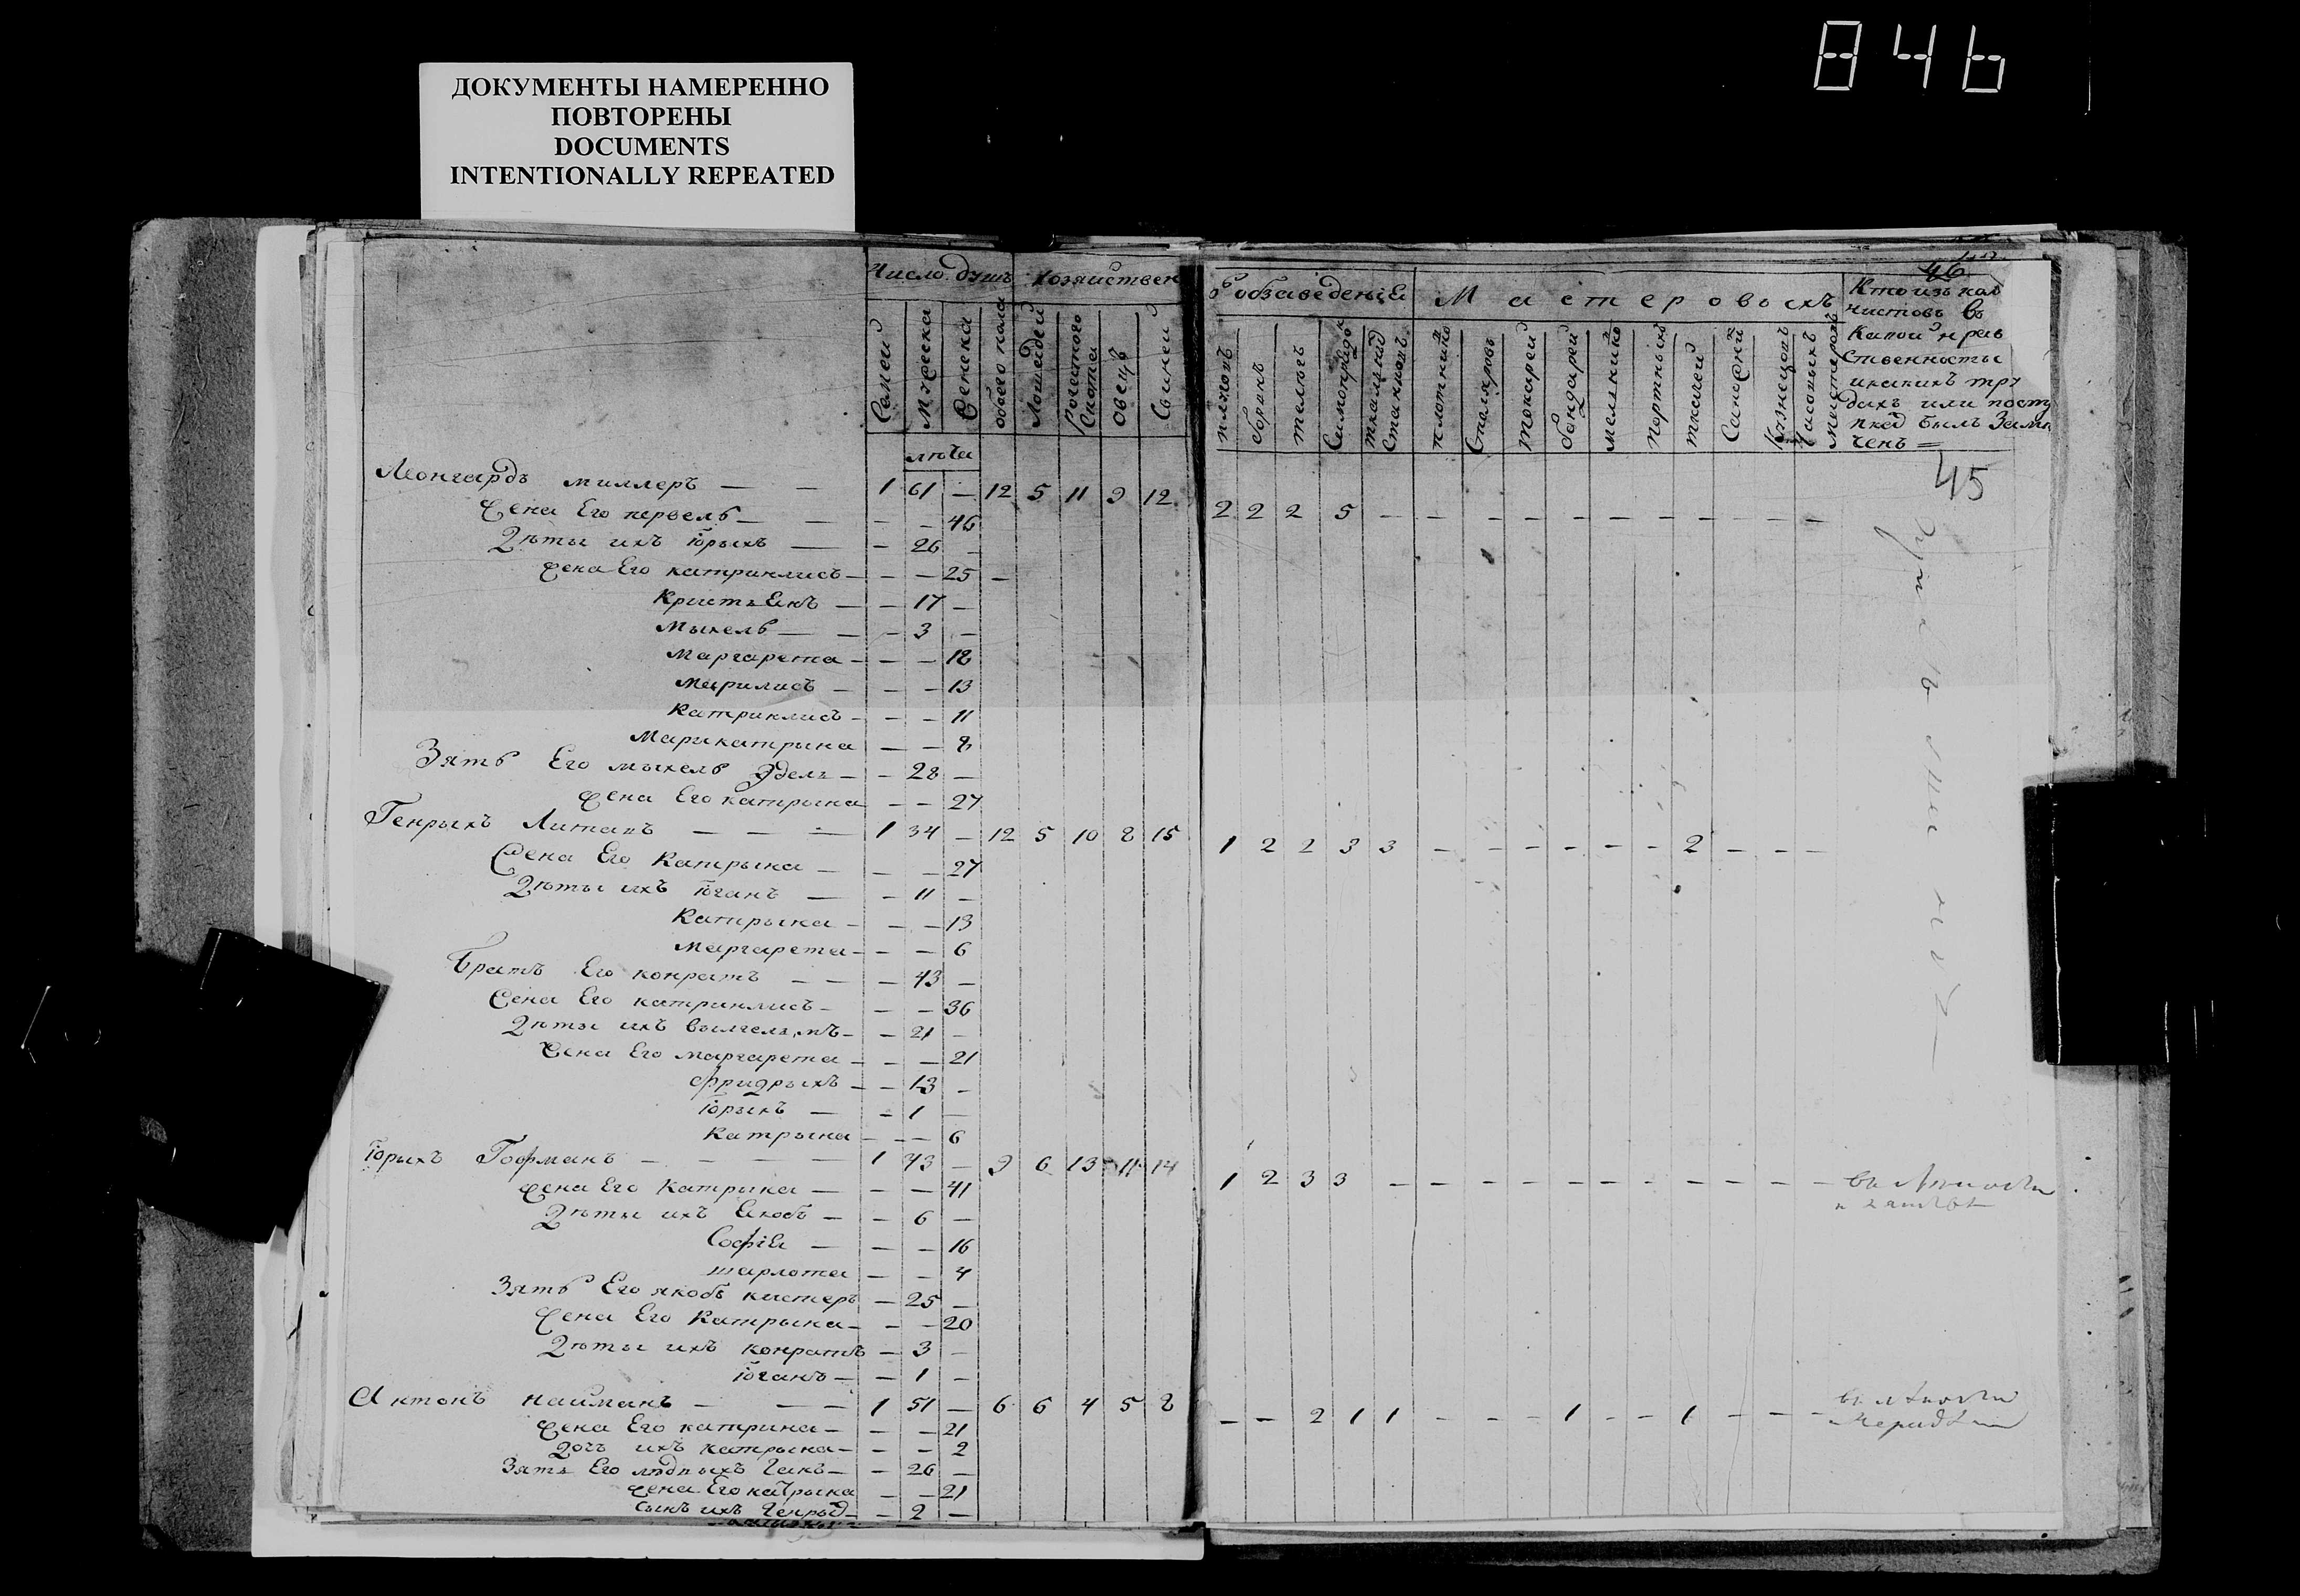 846
ДОКУМЕНТЫ НАМЕРЕННО
ПОВТОРЕНЫ
DOCUMENTS
INTENTIONALLY REPEATED
Число душъ Хозяйствен
Семей Мужеска Женска обоего пола Лошадей Рогатого Скота Овецъ Свиней
лѣта
Леонгардъ Миллеръ — — 1 61 — 12 5 11 9 12
Жена Его первель — — — — 46
Дѣти ихъ Юрыхъ — — 26 —
Жена Его катринлисъ — — — 25 —
Кристъянъ — — 17 —
Мыхель — — — 3 —
Маргарета — — — 18
Марилисъ — — — 13
Катринлисъ — — — 11
Марикатрына — — 8
Зять Его мыхель Эдель — — 28 —
жена Его катрына — — 27
Генрыхъ Литапъ — — — 1 34 — 12 5 10 8 15
Жена Его Катрына — — — 27
Дѣты ихъ Юганъ — — 11 —
Катрына — — — 13
Маргарета — — — 6
Братъ Его конратъ — — — 43 —
Жена Его катринлисъ — — — 36
Дѣты ихъ Вылгельмъ — — 21 —
Жена Его маргарета — — — 21
Фридрыхъ — — 13 —
Юрыхъ — — 1 —
Катрына — — — 6
Юрыхъ Гофманъ — — — — 1 43 — 9 6 13 11 14
жена Его Катрына — — — 41
Дѣты ихъ Якобъ — — 6 —
София — — — 16
шарлота — — 4
Зять Его якобъ кистеръ — 25 —
жена Его Катрына — — — 20
Дѣты ихъ конратъ — 3 —
Юганъ — — 1 —
Антонъ найманъ — — — 1 51 — 6 6 4 5 8
жена Его катрина — — — 21
дочъ ихъ катрына — — — 2
Зять Его людвыхъ Ганъ — — 26 —
жена Его катрына — — 21
сынъ ихъ Генрыхъ — — 2 —
46
о обзаведенія Мастеровыхъ
плуговъ боронъ телегъ Самопрядок ткальныхъ Становъ плотниковъ Столяровъ токарей бондарей мельниковъ портныхъ ткачей Сапожни Кузнецовъ Часовыхъ мастеровъ
Кто изъ кол
чистовъ въ
Какой нрав
ственности
и какихъ тру
дахъ или посту
пкѣ былъ Заме
ченъ =
45
2 2 2 5 — — — — — — — — — — —
1 2 2 3 3 — — — — — — 2 — — —
1 2 3 3 — — — — — — — — — — —
— — 2 1 1 — — — 1 — — 1 — — —